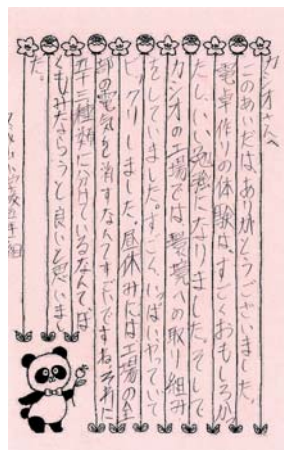 カシオさんへ
このあいだは、ありがとうございました。
電卓作りの体験は、すごくおもしろかっ
たし、いい勉強になりました。そして
カシオの工場では、環境への取り組み
をしていました。すごく、いっぱいやっていて
ビックリしました。昼休みには工場の全
部の電気を消すなんてすごいですねそれに
五十三種類に分けているなんてぼ
くもみならうと良いと思いまし
た。